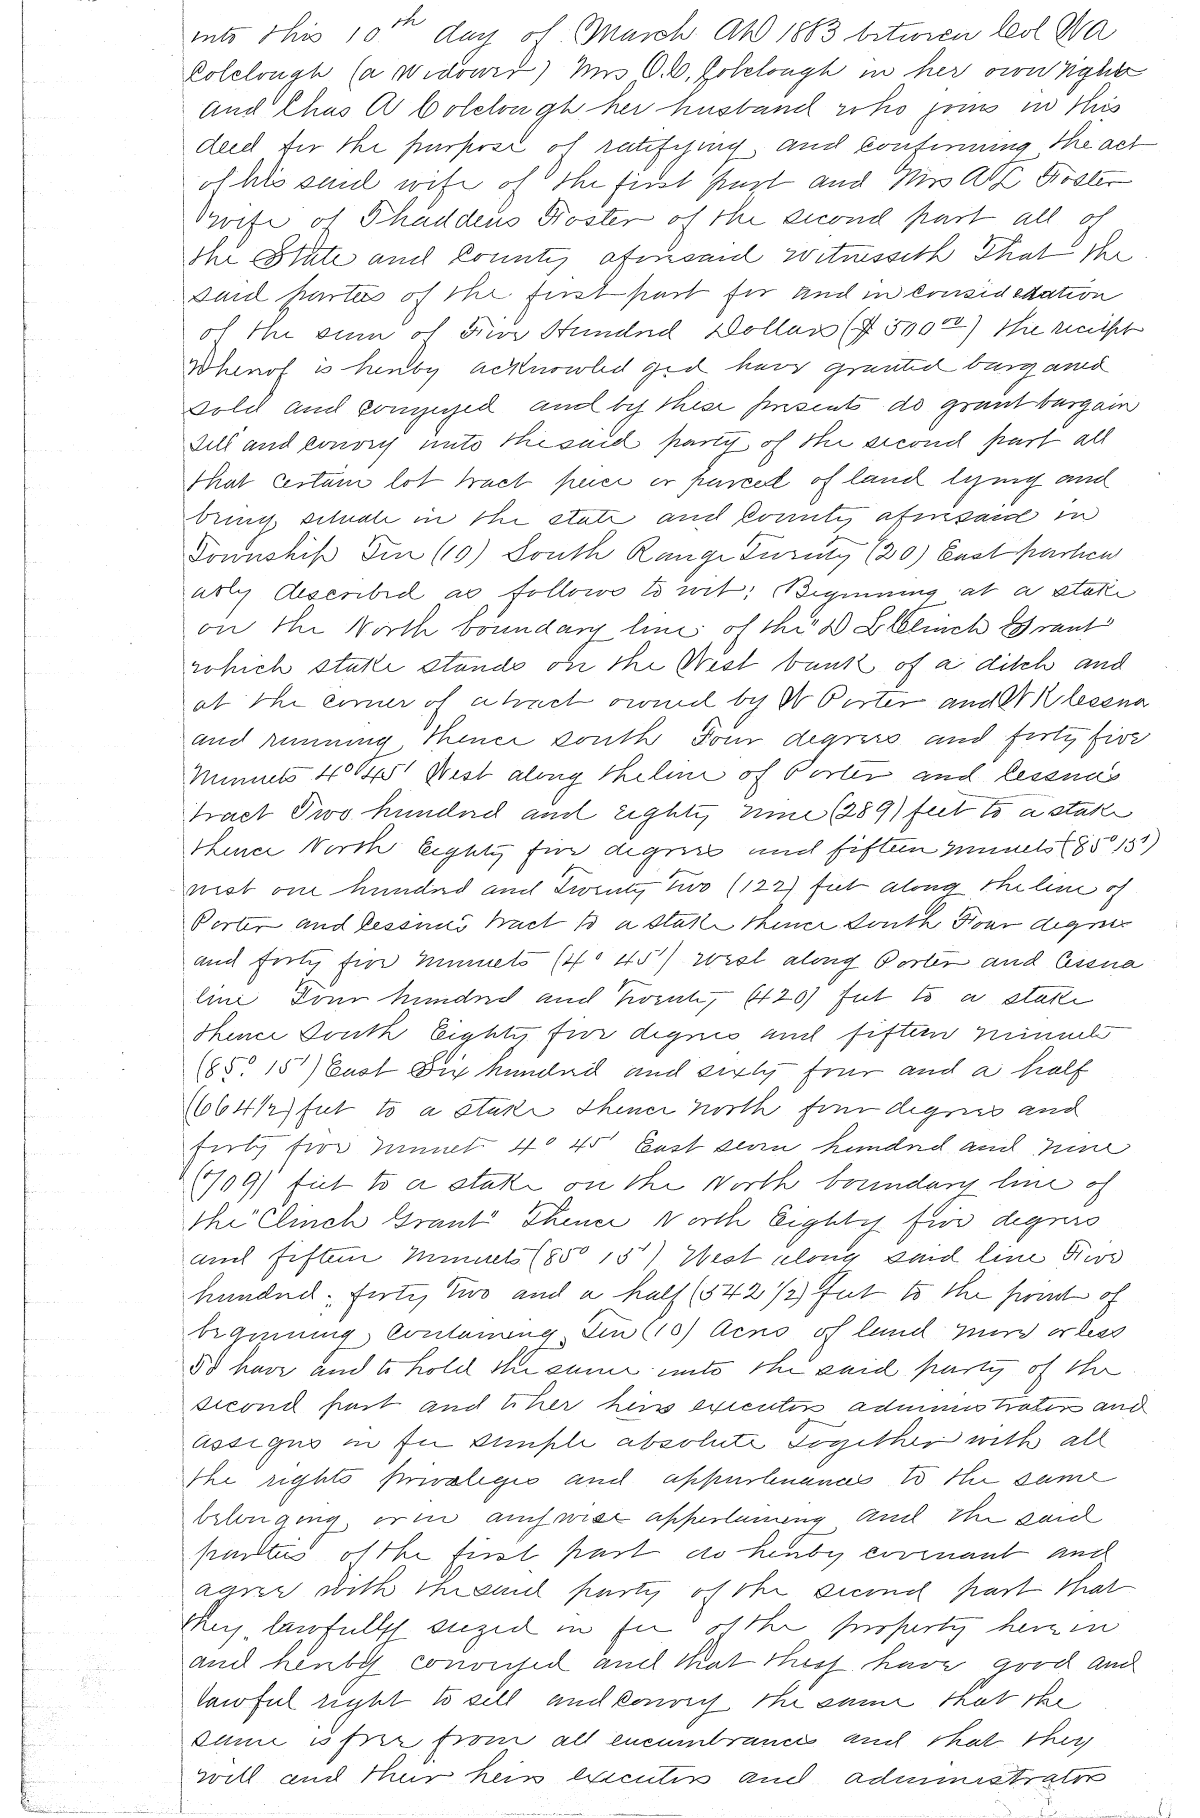 into this 10th day of March AD 1883 between Col Wa
Colclough (a widower) Mrs O.C. Colclough in her own right
and Chas A Colclough her husband who joins in this
deed for the purpose of ratifying and confirming the act
of his said wife of the first part and Mrs A L Foster
wife of Thaddeus Foster of the second part all of
the State and County aforesaid witnesseth That the
said parties of the first part for and in consideration
of the sum of Five Hundred Dollars ($500 00) the reciept
whereof is hereby acknowledged have granted barganed
sold and conveyed and by these presents do grant bargain
sell and convey unto the said party of the second part all
that certain lot tract peice or parcel of land lying and
being situate in the state and County aforesaid in
Township Ten (10) South Range Twenty (20) East particu
arly described as follows to wit; Beginning at a stake
on the North boundary line of the "D L Clinch Grant"
which stake stands on the West bank of a ditch and
at the corner of a tract owned by W Porter and W K Cessna
and running thence south Four degrees and forty five
Minnets 4° 45' West along the line of Porter and Cessna's
tract Two hundred and eighty nine (289) feet to a stake
thence North Eighty five degrees and fifteen minnets (85° 15')
west one hundred and Twenty Two (122) feet along the line of
Porter and Cessna's tract to a stake thence South Four degrees
and forty five minnets (4° 45') west along Porter and Cessna
line Four hundred and Twenty (420) feet to a stake
thence South Eighty five degrees and fifteen minnets
(85° 15') East Six hundred and sixty four and a half
(664 1/2) feet to a stake thence north four degrees and
forty five minnet 4° 45' East seven hundred and nine
(709) feet to a stake on the North boundary line of
the "Clinch Grant" Thence North Eighty five degrees
and fifteen Minnets (85° 15') West along said line Five
hundred forty two and a half (542 1/2) feet to the point of
beginning, Containing Ten (10) Acres of land more or less
To have and to hold the same unto the said party of the
second part and to her heirs executors administrators and
assigns in fee simple absolute Together with all
the rights privaleges and appurtenances to the same
belonging or in anywise appertaining and the said
parties of the first part do hereby covenant and
agree with the said party of the second part that
they lawfully siezed in fee of the property herein
and hereby conveyed and that they have good and
lawful right to sell and convey the same that the
same is free from all encumbrances and that they
will and their heirs executors and administrators